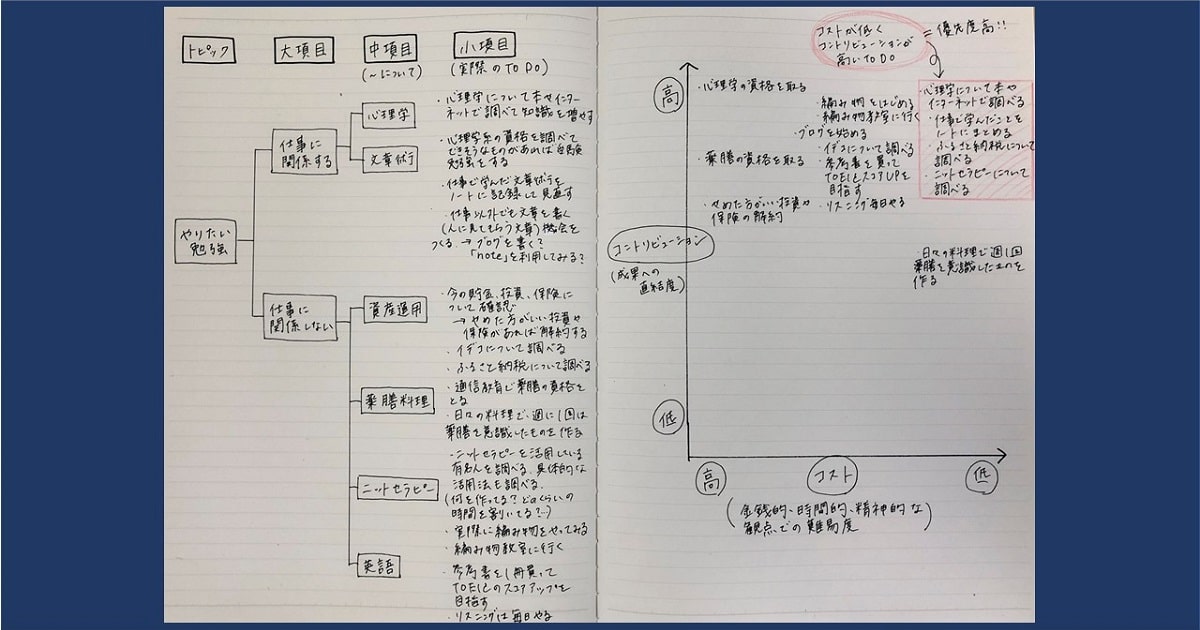 トピック
大項目
中項目
(〜について)
小項目
(実際のTO DO)
やりたい
勉強
仕事に
関係する
心理学
・心理学について本やインター
ネットで調べて知識を増やす
・心理学系の資格を調べて
できそうなものがあれば受験
勉強をする
文章術
・仕事で学んだ文章術を
ノートに記録して見直す
・仕事以外でも文章を書く
(人に見てもらう文章)機会を
つくる → ブログを書く?
「note」を利用してみる?
仕事に
関係しない
資産運用
・今の貯金、投資、保険に
ついて確認
→ やめた方がいい投資や
保険があれば解約する
・イデコについて調べる
・ふるさと納税について調べる
薬膳料理
・通信教育で薬膳の資格を
とる
・日々の料理で、週に1回は
薬膳を意識したものを作る
ニットセラピー
・ニットセラピーを活用している
有名人を調べる。具体的な
活用法も調べる。
(何を作ってる?どのくらいの
時間を割いてる?…)
・実際に編み物をやってみる
・編み物教室に行く
英語
・参考書を1冊買って
TOEICのスコアアップを
目指す
・リスニングは毎日やる
コストが低く
コントリビューションが
高いTO DO
= 優先度高!!
・心理学について本や
インターネットで調べる
・仕事で学んだことを
ノートにまとめる
・ふるさと納税について
調べる
・ニットセラピーについて
調べる
高
・心理学の資格を取る
・編み物をはじめる
・編み物教室に行く
・ブログを始める
・イデコについて調べる
・薬膳の資格を取る
・参考書を買って
TOEICスコアUPを
目指す
・やめた方がいい投資や
保険の解約
・リスニング毎日やる
コントリビューション
(成果への
直結度)
・日々の料理で週1回
薬膳を意識したものを
作る
低
高
コスト
低
(金銭的、時間的、精神的な
観点での難易度)